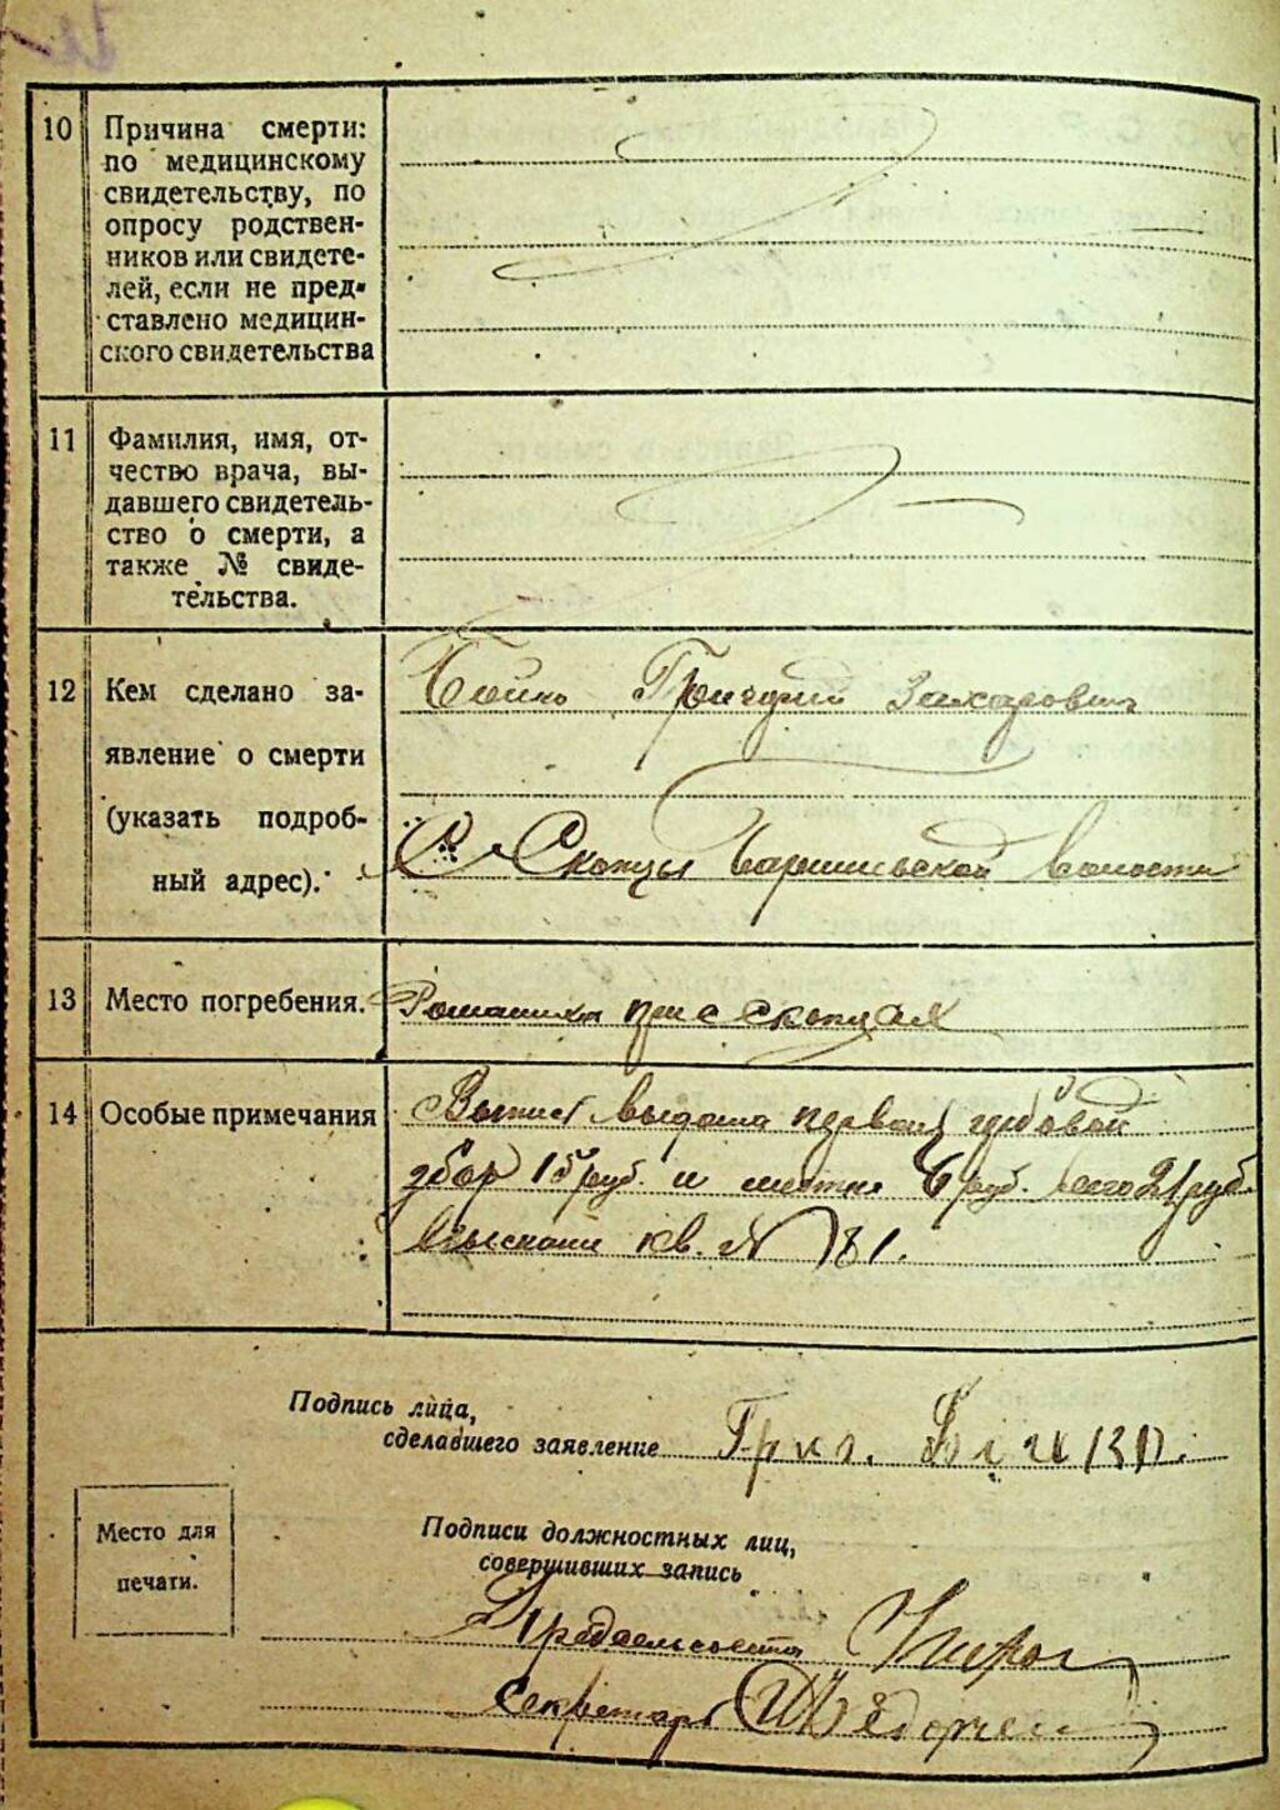 10 Причина смерти:
по медицинскому
свидетельству, по
опросу родствен-
ников или свидете-
лей, если не пред-
ставлено медицин-
ского свидетельства
11 Фамилия, имя, от-
чество врача, вы-
давшего свидетель-
ство о смерти, а
также № свиде-
тельства.
12 Кем сделано за-
явление о смерти
(указать подроб-
ный адрес).
Бойко Григорий Захарович
С. Скопцы Барышевской волости
13 Место погребения.
при с Скопцах
14 Особые примечания
выдана гербовой
збор 15 руб. и 6 руб. всего 21 руб.
взыскани кв. № 181.
Подпись лица,
сделавшего заявление Григ.
Место для
печати.
Подписи должностных лиц,
совершивших запись
Предсельсовета
Секретарь